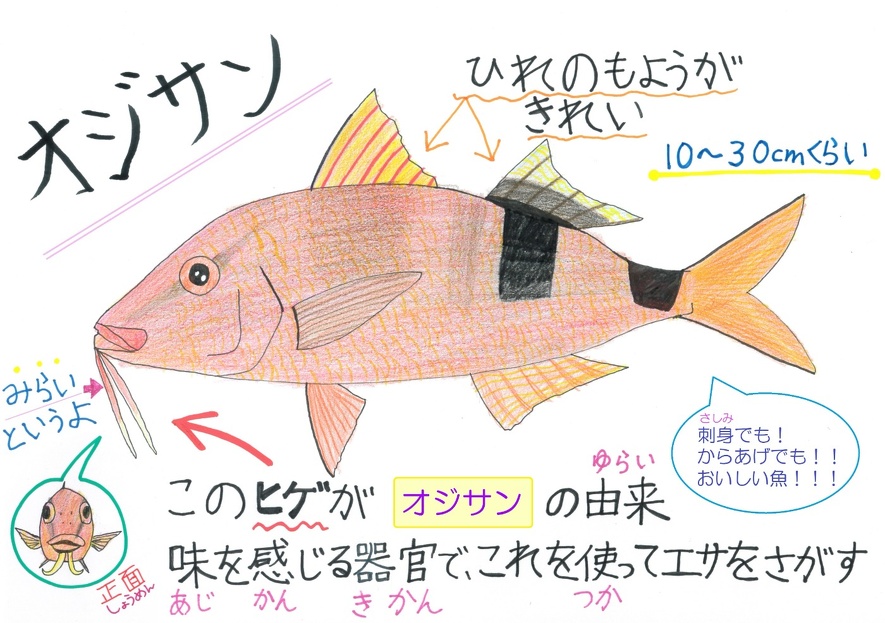 オジサン
ひれのもようが
きれい
10〜30cmくらい
みらい
というよ
さしみ
刺身でも！
からあげでも！！
おいしい魚！！！
ゆらい
このヒゲが オジサン の由来
味を感じる器官で、これを使ってエサをさがす
あじ かん きかん つか
正面
しょうめん